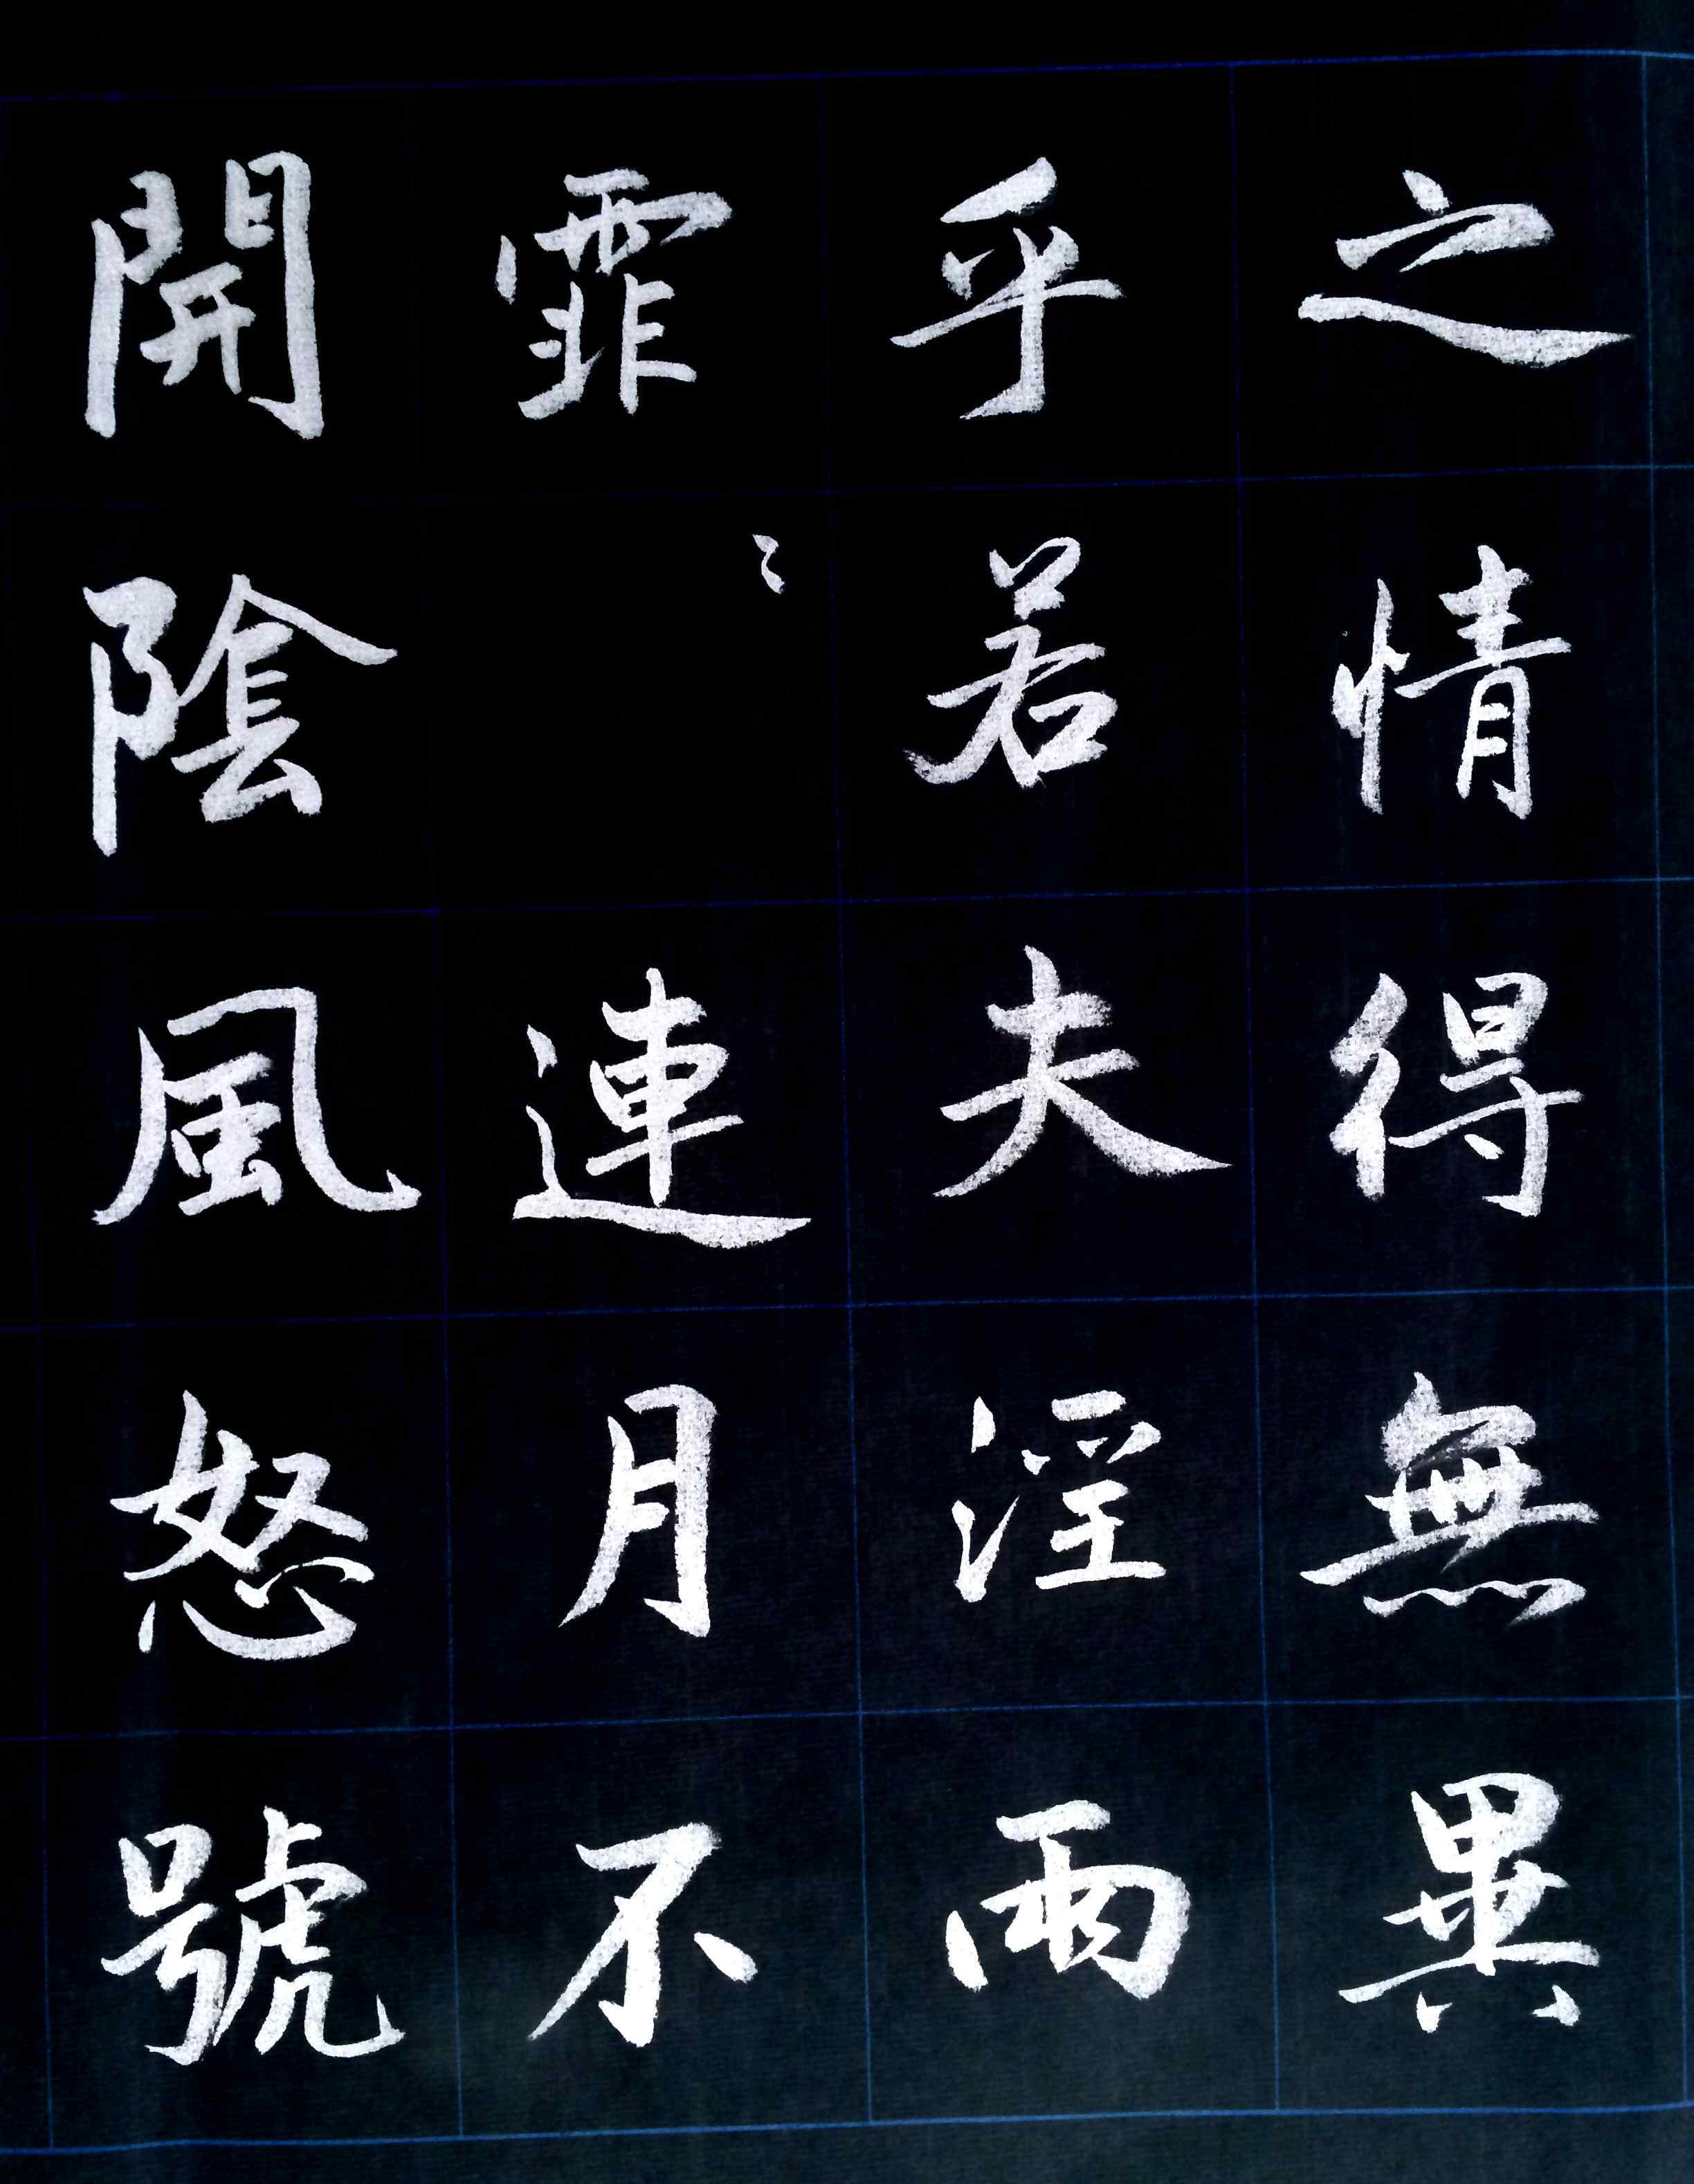 之情得無異
乎若夫淫雨
霏〻連月不
開陰風怒號